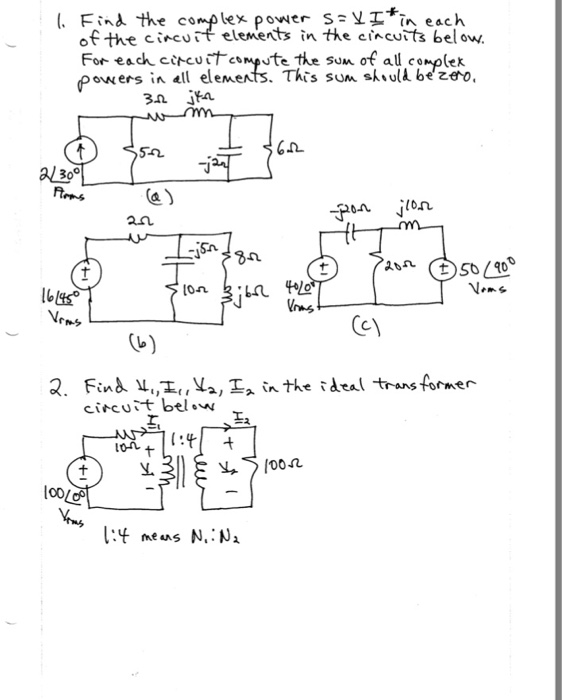 1. Find the complex power S = V I* in each
of the circuit elements in the circuits below.
For each circuit compute the sum of all complex
powers in all elements. This sum should be zero.
3Ω j4Ω
5Ω -j2Ω 6Ω
2∠30°
Arms
(a)
2Ω
-j5Ω 8Ω
10Ω j6Ω
16∠45°
Vrms
(b)
-j20Ω j10Ω
20Ω 50∠90°
Vrms
40∠0°
Vrms
(c)
2. Find V₁, I₁, V₂, I₂ in the ideal transformer
circuit below
I₁ I₂
10Ω + 1:4 +
V₁ V₂ 100Ω
- -
100∠0°
Vrms
1:4 means N₁:N₂